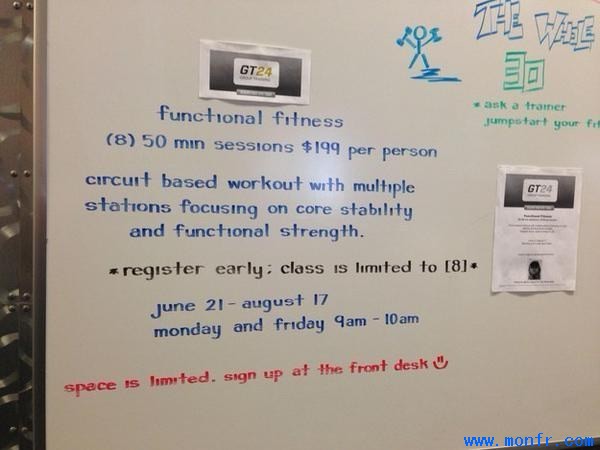 THE WHOLE
30
* ask a trainer
jumpstart your fit
GT24
GROUP TRAINING
functional fitness
(8) 50 min sessions $199 per person
circuit based workout with multiple
stations focusing on core stability
and functional strength.
*register early; class is limited to [8]*
june 21 - august 17
monday and friday 9am - 10am
space is limited. sign up at the front desk
GT24
Functional Fitness
www.monfr.com